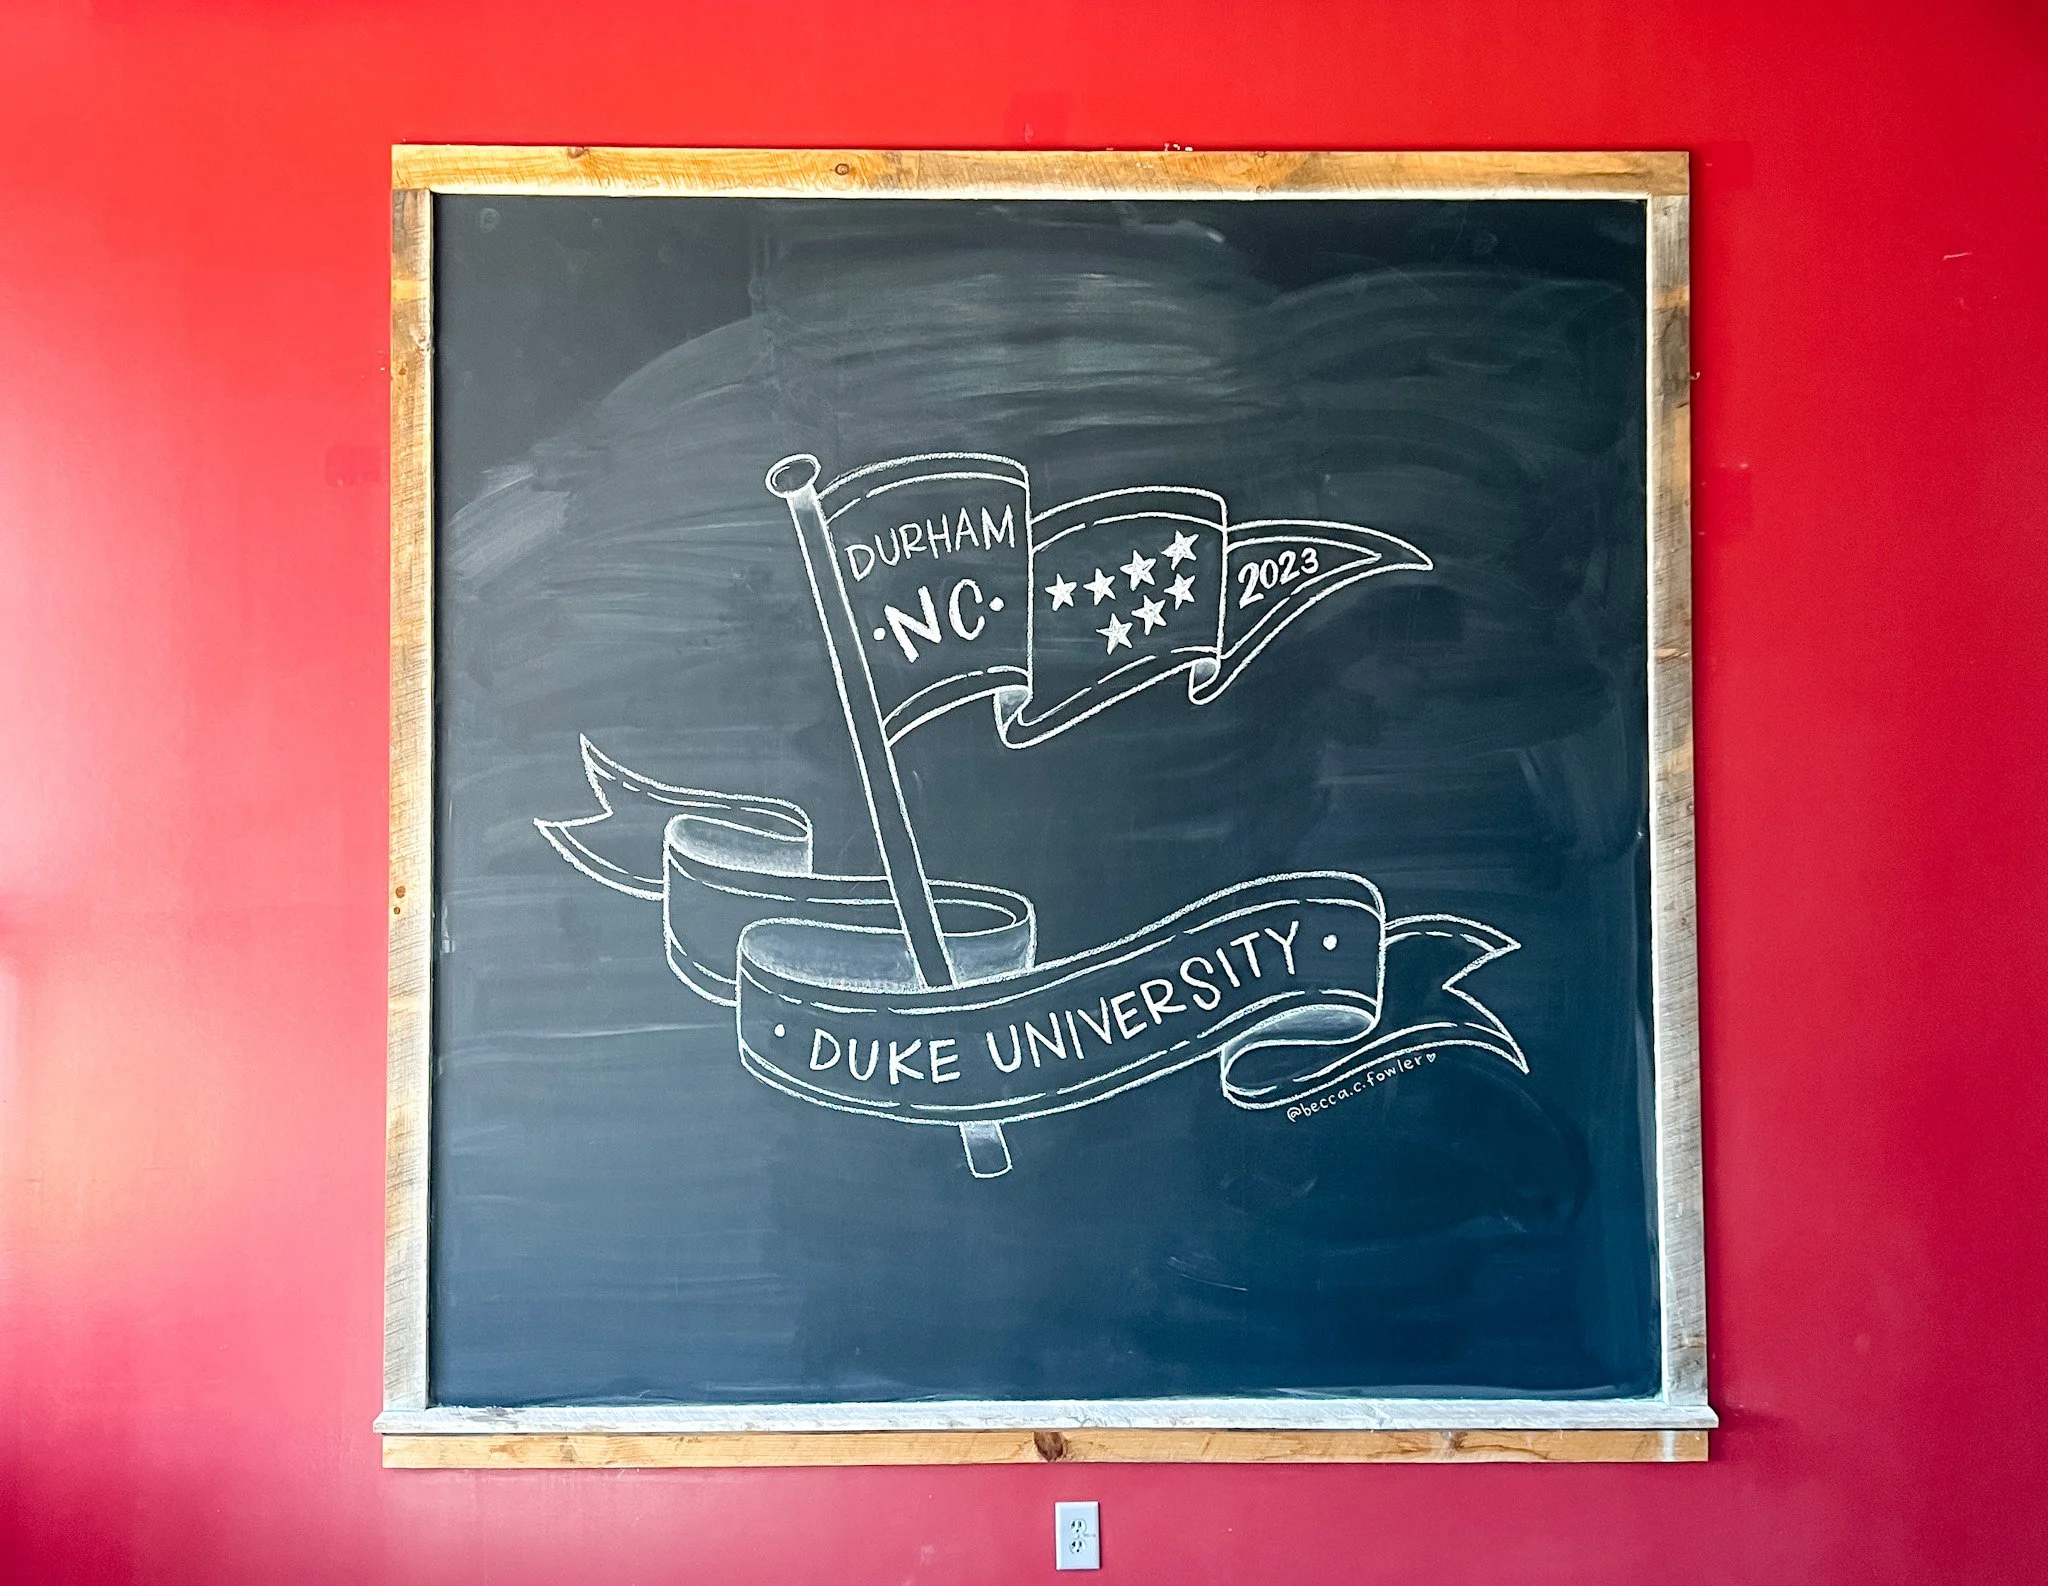 DURHAM
·NC·
2023
· DUKE UNIVERSITY ·
@becca.c.fowler♡